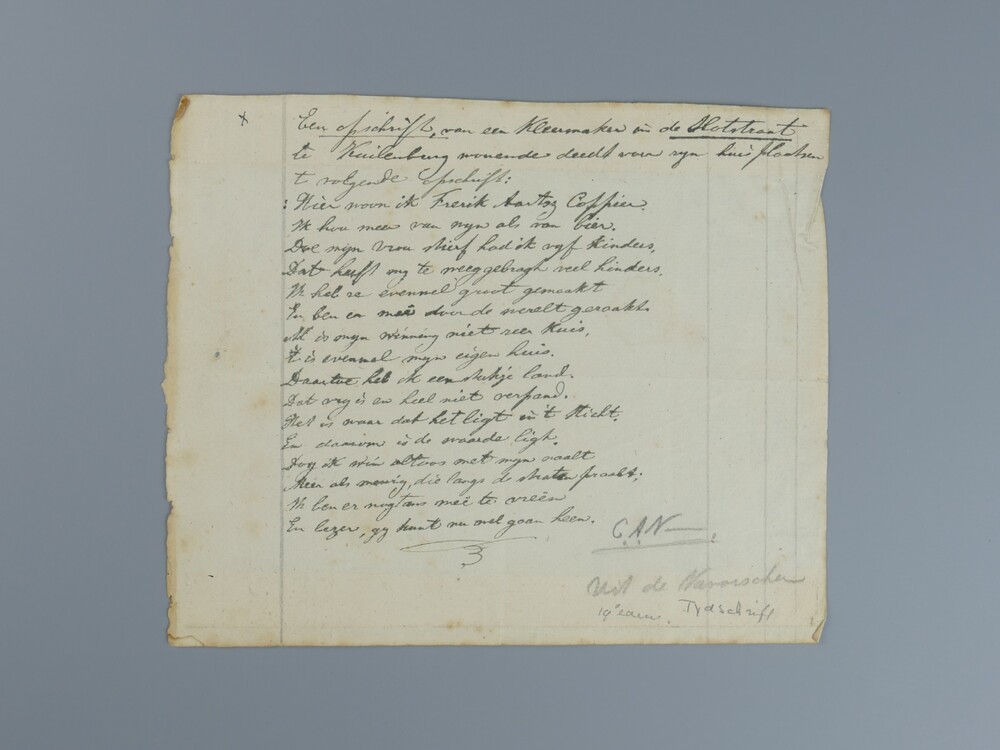 x
Een opschrift, van een Kleermaker in de Slotstraat
te Kuilenburg wonende deedt voor zyn huis plaatsen
t volgende Opschrift:
: Hier woon ik Frerik Aartsz Coffier.
Ik hou meer van wyn als van bier.
Doe mijn vrou stierf had ik vyf kinders,
Dat heeft my te weeg gebragh veel hinders.
Ik heb ze evenwel groot gemaakt
En ben er meê door de werelt geraakt.
Al is myn winning niet zeer kuis,
't is evenwel myn eigen huis.
Daartoe heb ik een stukje land.
Dat vry is en heel niet verpand.
Het is waar dat het ligt in 't Sticht.
En daarom is de waarde ligt.
Dog ik win altoos met myn naalt
Meer als menig, die langs de straten praalt;
Ik ben er nugtans meê te vreên
En lezer, gy kunt nu wel gaan heen.
C.A.N.
Uit de Navorscher
19e eeuw. Tydschrift